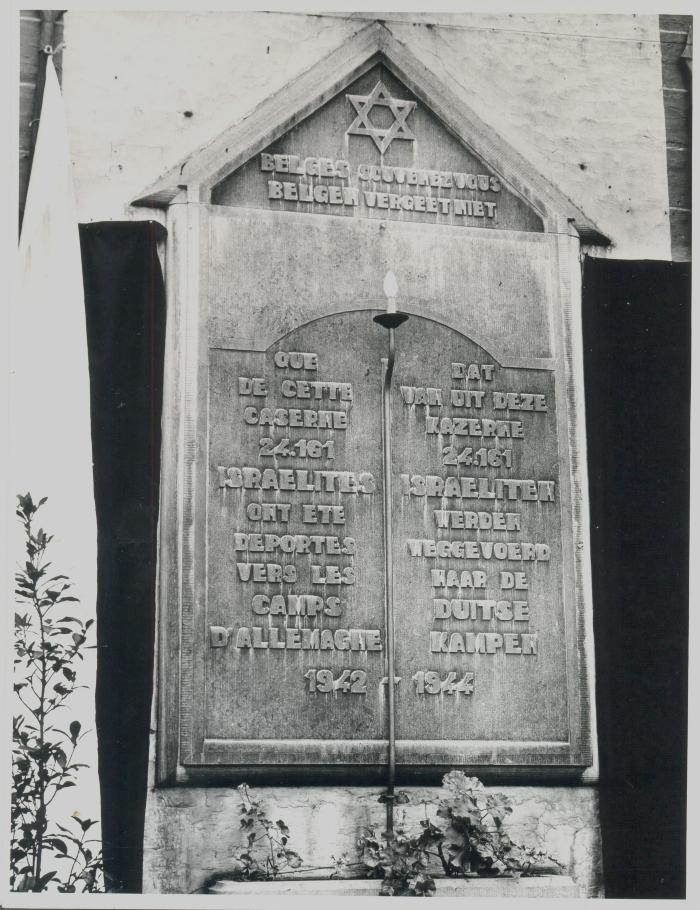 BELGES SOUVENEZ VOUS
BELGEN VERGEET NIET
QUE
DE CETTE
CASERNE
24.161
ISRAELITES
ONT ETE
DEPORTES
VERS LES
CAMPS
D'ALLEMAGNE
DAT
VAN UIT DEZE
KAZERNE
24.161
ISRAELITEN
WERDEN
WEGGEVOERD
NAAR DE
DUITSE
KAMPEN
1942 - 1944